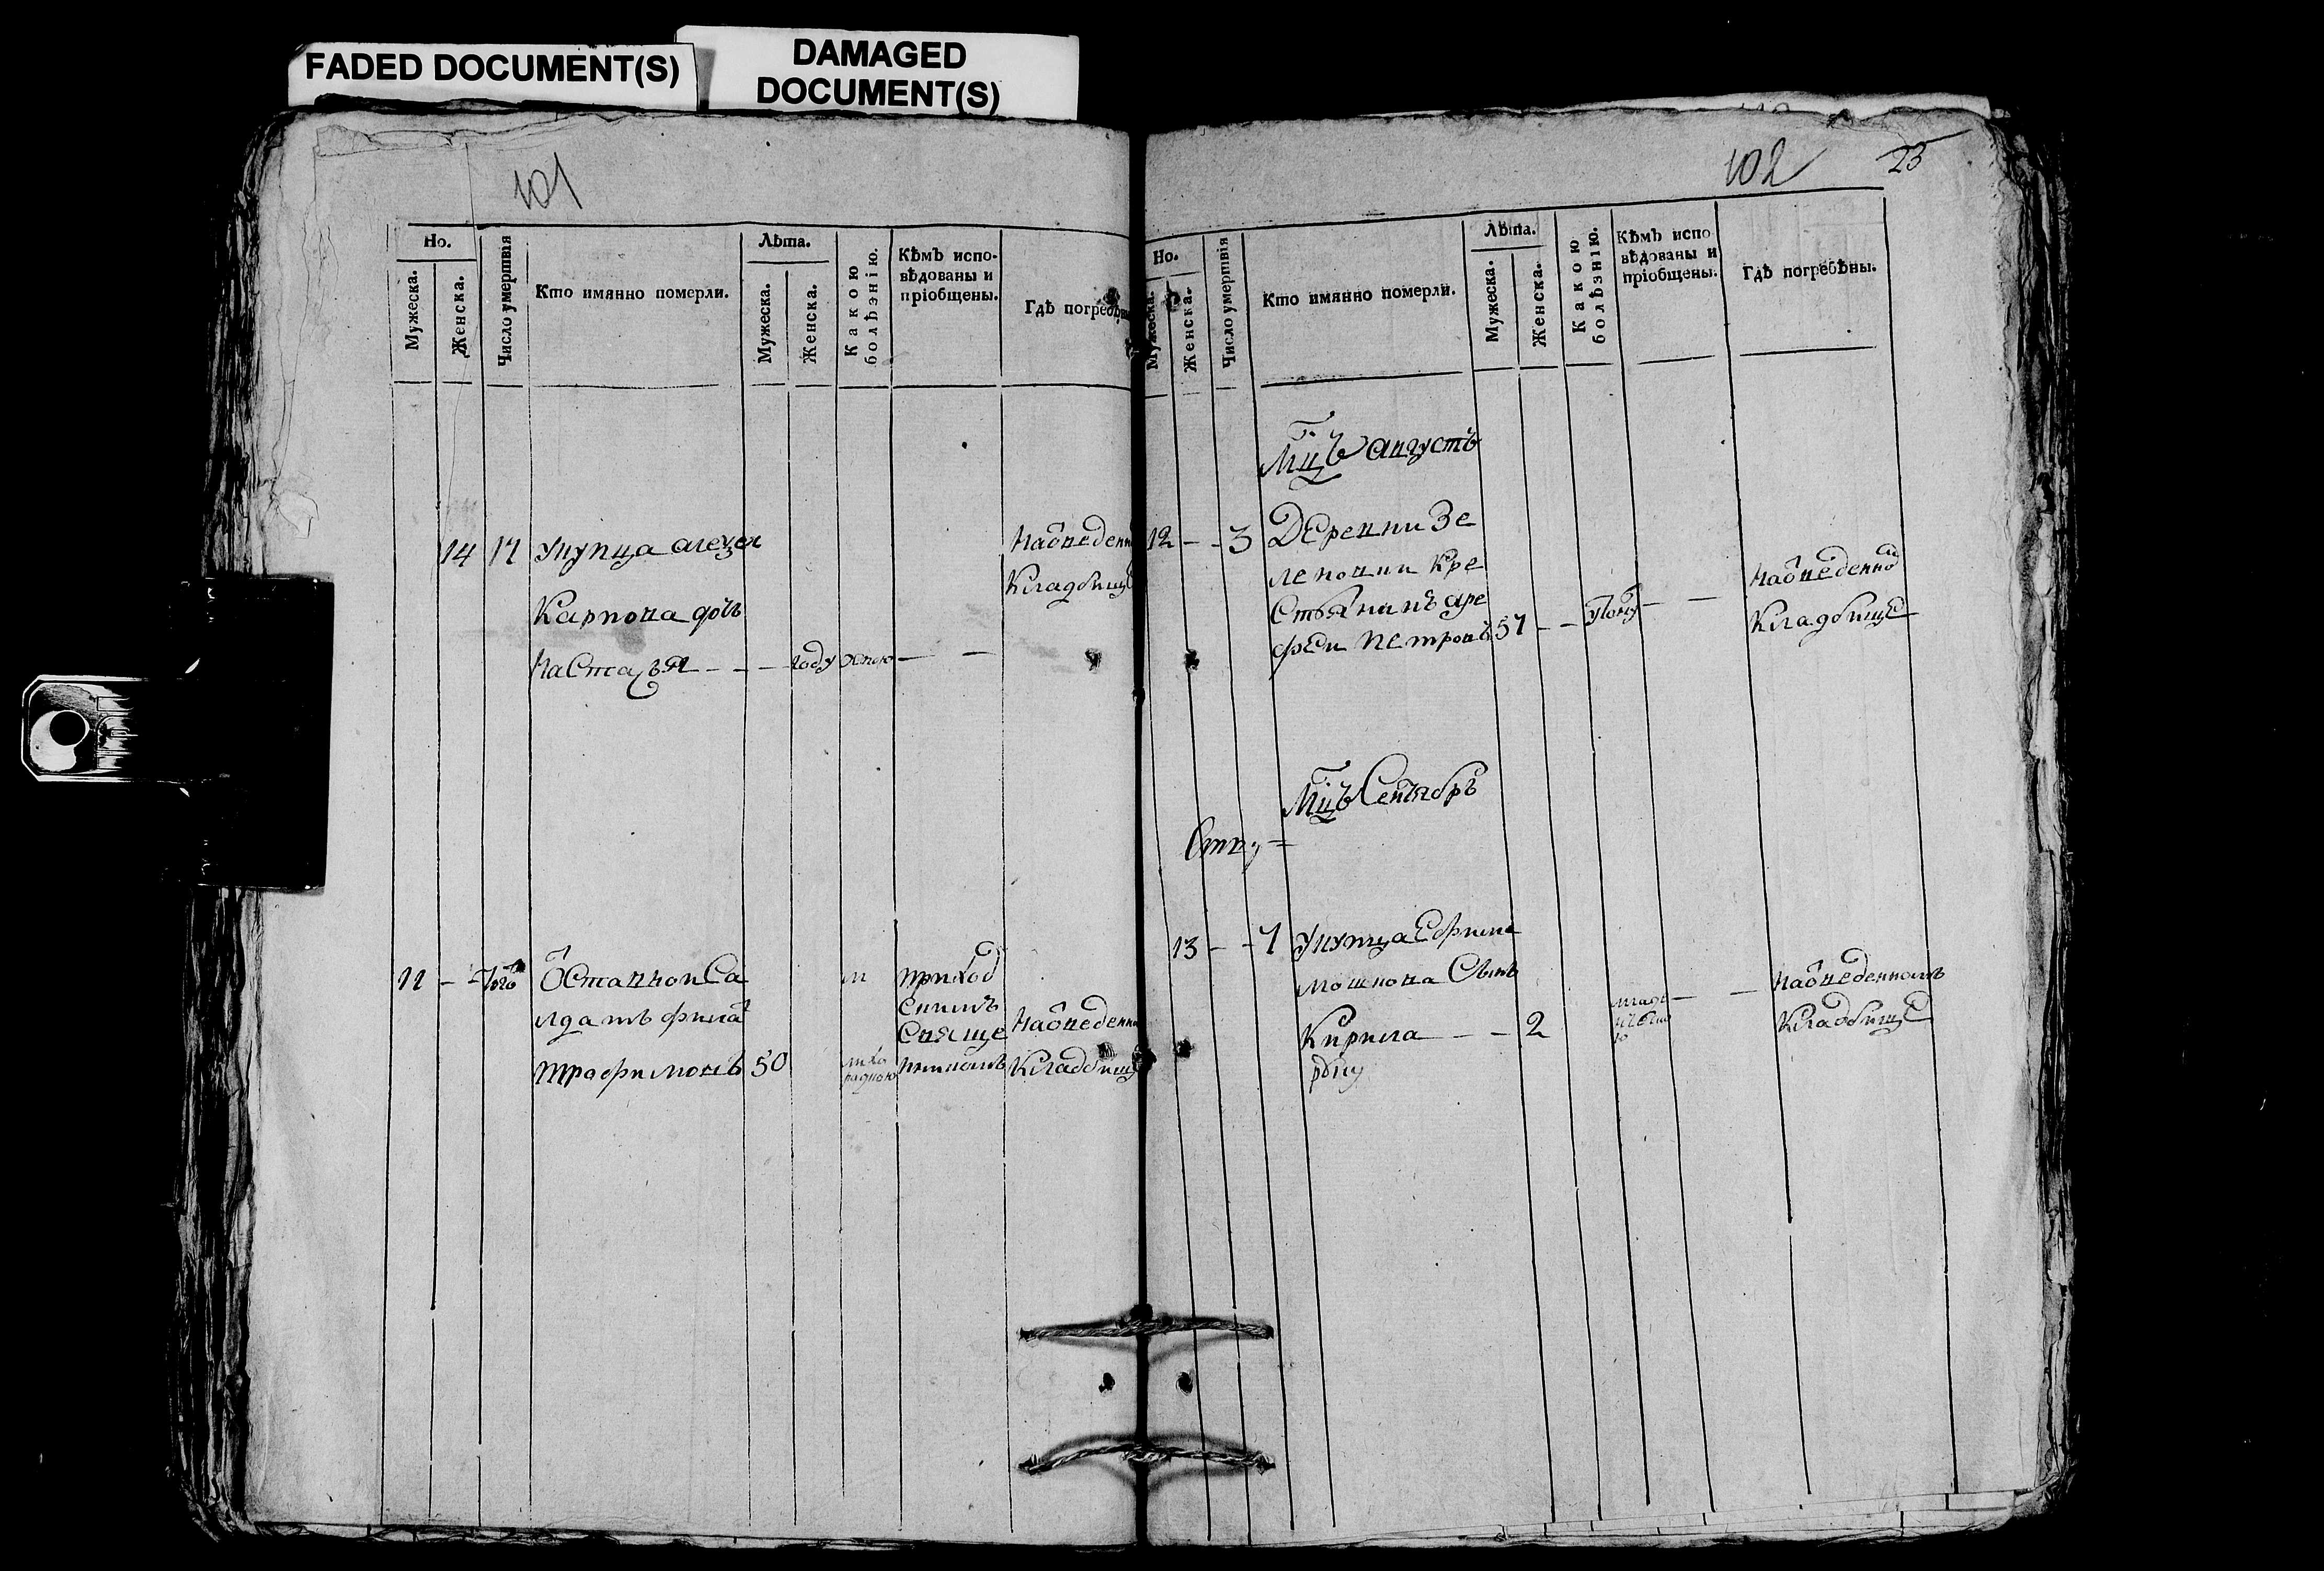 FADED DOCUMENT(S)
DAMAGED
DOCUMENT(S)
101
Но.
Мужеска.
Женска.
Число умертвія
Кто имянно померли.
Лѣта.
Мужеска.
Женска.
Какою
болѣзнію.
Кѣмъ испо-
вѣдованы и
пріобщены.
Гдѣ погребены
14 17 Укупца алеѯея
Карпова дочь
Настасья - - - году оспою - -
Наотведенно
Кладбище
11 - - Того Отставнои Са
лдатъ филат
Трафимовъ 50
лихо
радкою
приход
скимъ
свяще
никомъ
Наотведенно
Кладбище
102 23
Но.
Мужеска.
Женска.
Число умертвія
Кто имянно померли.
Лѣта.
Мужеска.
Женска.
Какою
болѣзнію.
Кѣмъ испо
вѣдованы и
пріобщены.
Гдѣ погребѣны.
Мцъ августъ
12 - - 3 Деревни Зе
леновки Кре
стьянинъ аре
феи Петровъ 57 - - - -
Наотведенно
Кладбище
Мцъ Сентябрь
13 - - 7 Укупца Ефима
Мошнова Сынъ
Кирила - - 2
младе
- -
Наотведенномъ
Кладбище